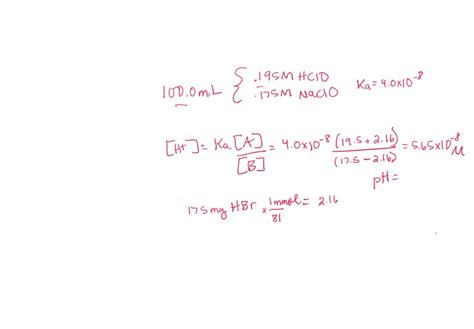 .195M HClO
100.0mL { .175M NaClO Ka=4.0x10⁻⁸
[H+] = Ka [A] / [B] = 4.0x10⁻⁸ (19.5+2.16) / (17.5-2.16) = 5.65x10⁻⁸ M
pH=
175mg HBr x 1mmol / 81 = 2.16